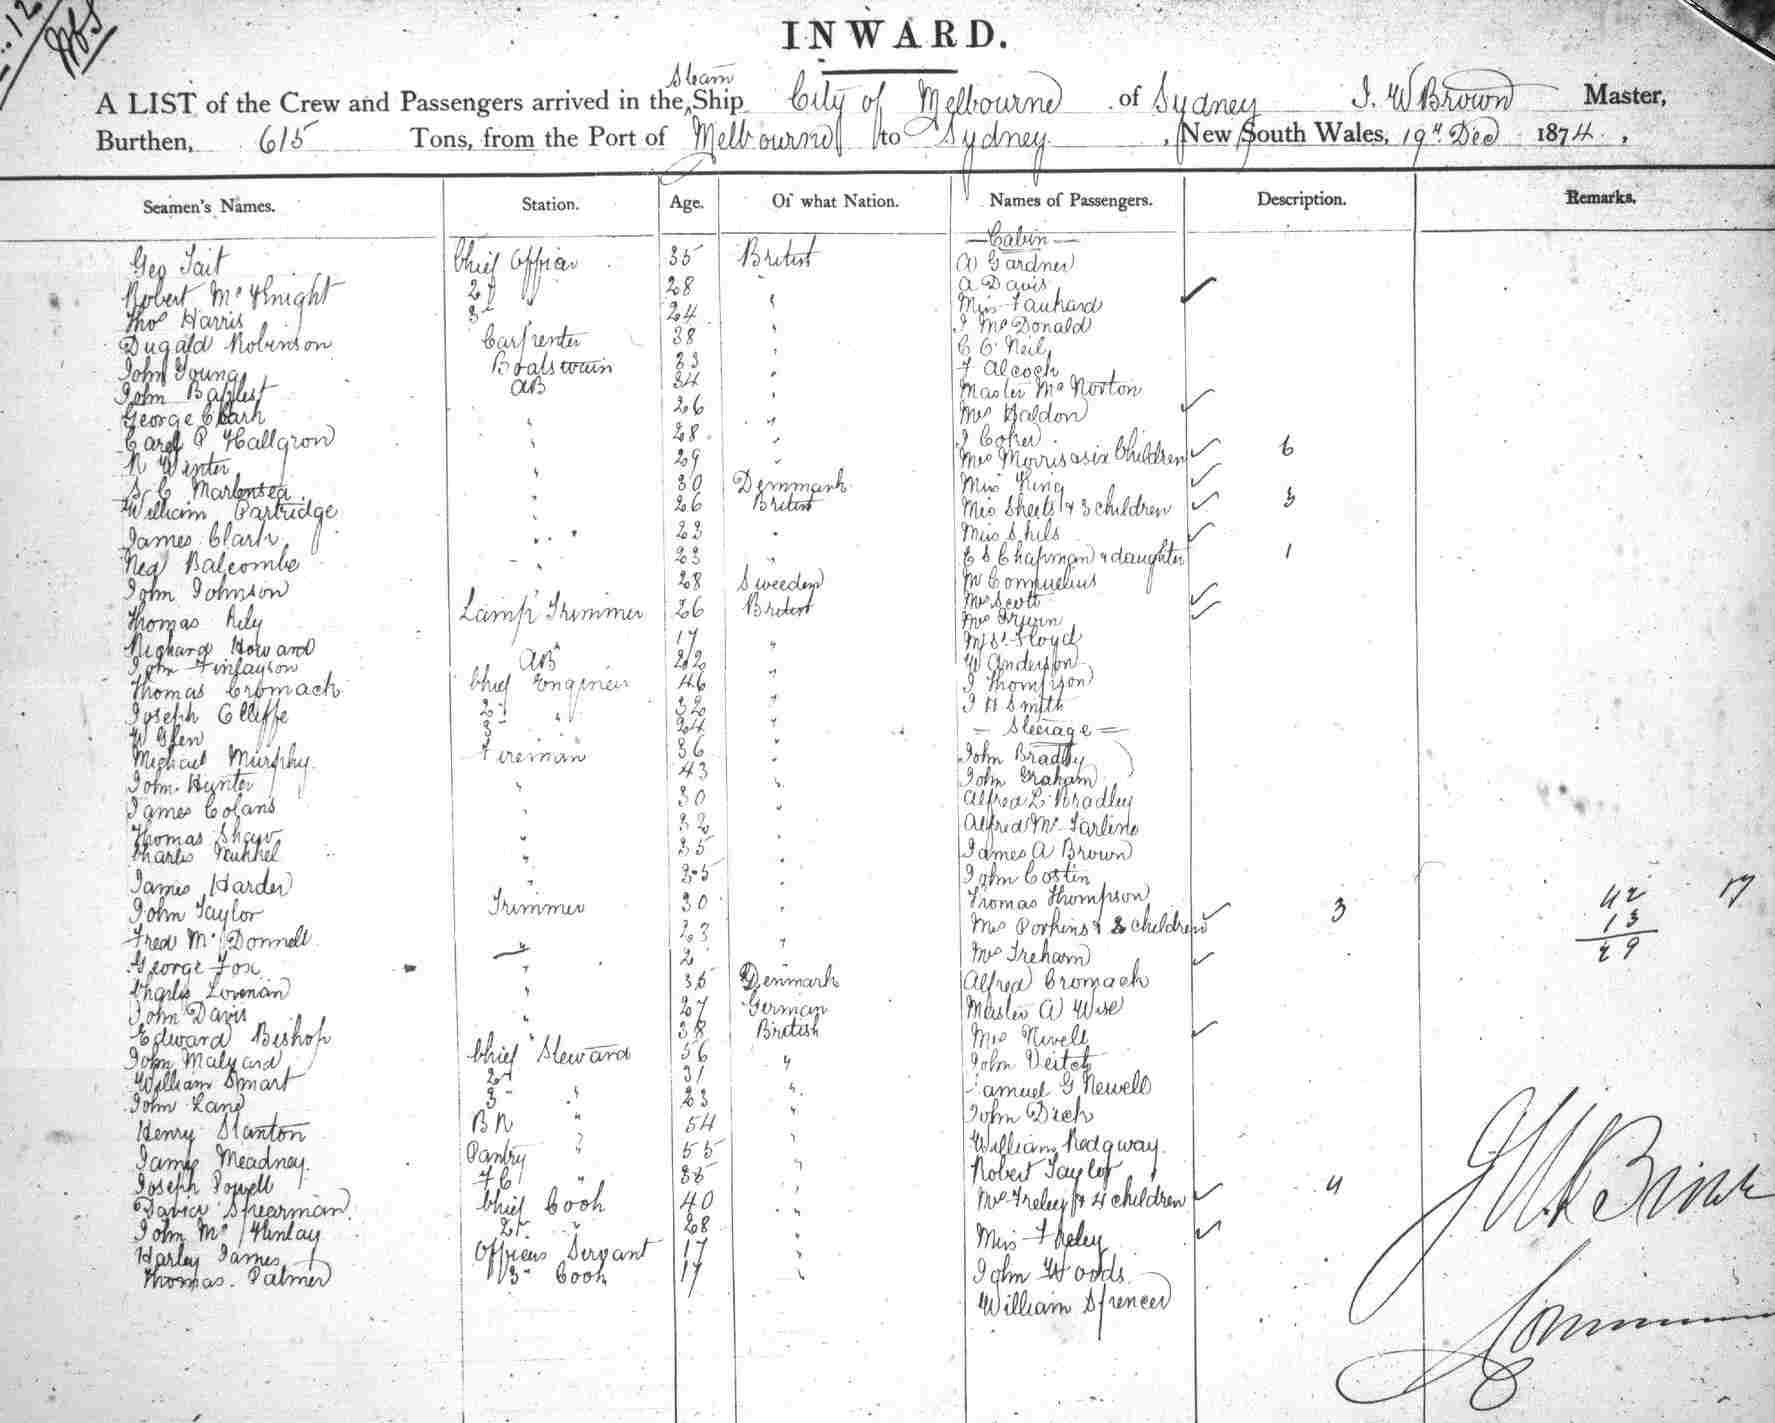 INWARD.
A LIST of the Crew and Passengers arrived in the Steam Ship City of Melbourne of Sydney J. W Brown Master,
Burthen, 615 Tons, from the Port of Melbourne to Sydney, New South Wales, 19th Dec 1874,
Seamen's Names. Station. Age. Of what Nation. Names of Passengers. Description. Remarks.
— Cabin —
Geo Tait Chief Officer 35 British A Gardner
Robert McKnight 2d " 28 " A Davis
Thos Harris 3d " 24 " Miss
Dugald Robinson Carpenter 38 " J McDonald
John Young Boatswain 33 " C O'Neil
John Baptist AB 34 " F Alcock
George Clark " 26 " Master McNorton
Carl P Hallgron " 28 " Mrs Haldon
N Winter " 29 " J Coker
S. C 30 Denmark Mrs Morris & six Children 6
William Partridge " 26 British Miss King
James Clark " 23 " Mrs Sheels & 3 children 3
Ned Balcombe " 23 " Miss
John Johnson " 28 Sweeden E S Chapman & daughter 1
Thomas Rily Lamp Trimmer 26 British
Richard Howard " 17 " Mrs Scott
John Finlayson AB 22 " Mrs Irwin
Thomas Cromack Chief Engineer 46 " Floyd
Joseph Cliffe 2d " 32 " W Anderson
W Glen 3d " 24 " J Thompson
Michael Murphy Fireman 36 " J H Smith
John Hunter " 43 "
— Steerage —
James Cojans " 30 " John Bradley
Thomas Shaw " 32 " John Graham
Charles " 35 " Alfred L Bradley
James Harder " 25 " Alfred
John Taylor Trimmer 30 " James A Brown
Fred McDonnell " 23 " John Costin
George Fox " 2 " Thomas Thompson
Charles Lovenan " 35 Denmark Mrs Porkins & children 3
John Davis " 27 German Mrs Treham
Edward Bishop " 38 British Alfred Cromack
John Malyard Chief Steward 56 " Master A Wise
William Smart 2d " 31 " Mrs Nivell
John Lane 3d " 23 " John Veitch
Henry Stanton BR " 54 " Samuel G Newell
James Meadney Pantry " 55 " John Dick
Joseph Powell F C " 35 " William Redgway
David Spearman Chief Cook 40 " Robert Taylor
John McKinlay 2d " 28 " Mrs Freley & 4 children 4
Harley James Officers Servant 17 " Miss Freley
Thomas Palmer 3d Cook 17 " John Woods
William Spencer
42 17
13
29